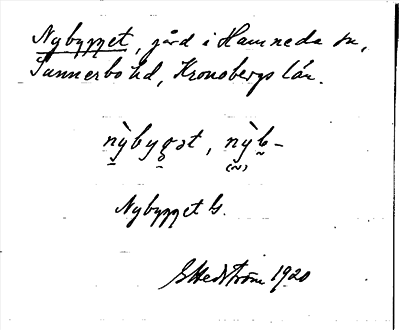 Nybygget, gård i Hamneda sn,
Sunnerbo hd, Kronobergs län.
nỳbygət, nỳb-
(~)
Nybygget G.
G Hedström 1920